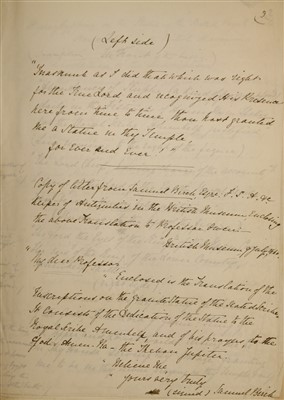 3
(Left side)
"Inasmuch as I did that which was right
for the True Lord, and recognized His Presence
here from time to time, thou hast granted
me a Statue in thy Temple
for Ever and Ever
Copy of letter from Samuel Birch Esqre. F.S.A. &c
Keeper of Antiquities in the British Museum enclosing
the above Translation to Professor Owen.
British Museum 9 July
"My dear Professor
"Enclosed is the Translation of the
Inscriptions on the granite Statue of the Seated
It consists of the Dedication of the Statue to the
Royal Scribe Amenhetp, and of his prayers to the
God Amen-Ra - the Theban Jupiter.
"Believe Me
"Yours very truly
(signed) Samuel Birch